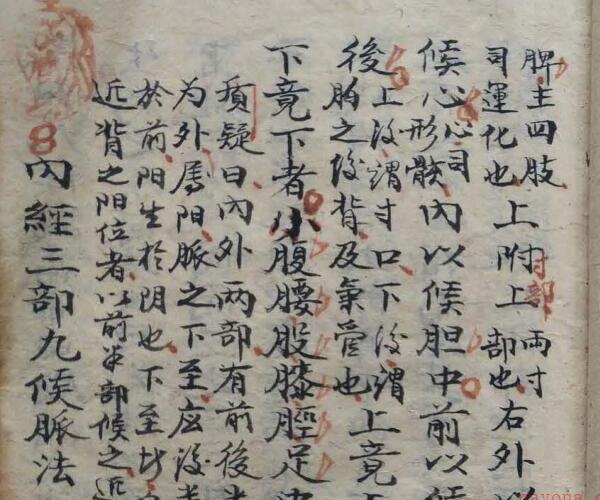 脾主四肢
司運化也
上附上
寸部
兩寸
部也
右外以
候心
心司
形骸
內以候胆中前以候
後
上後謂寸口下後謂
胸之後背及氣管也
上竟
下竟下者小腹腰股膝脛足
質疑曰內外兩部有前後
为外屬阳脈之下至应後
於前阳生於阴也下至
近背之阳位者以前半部候之近
8
內經三部九候脈法